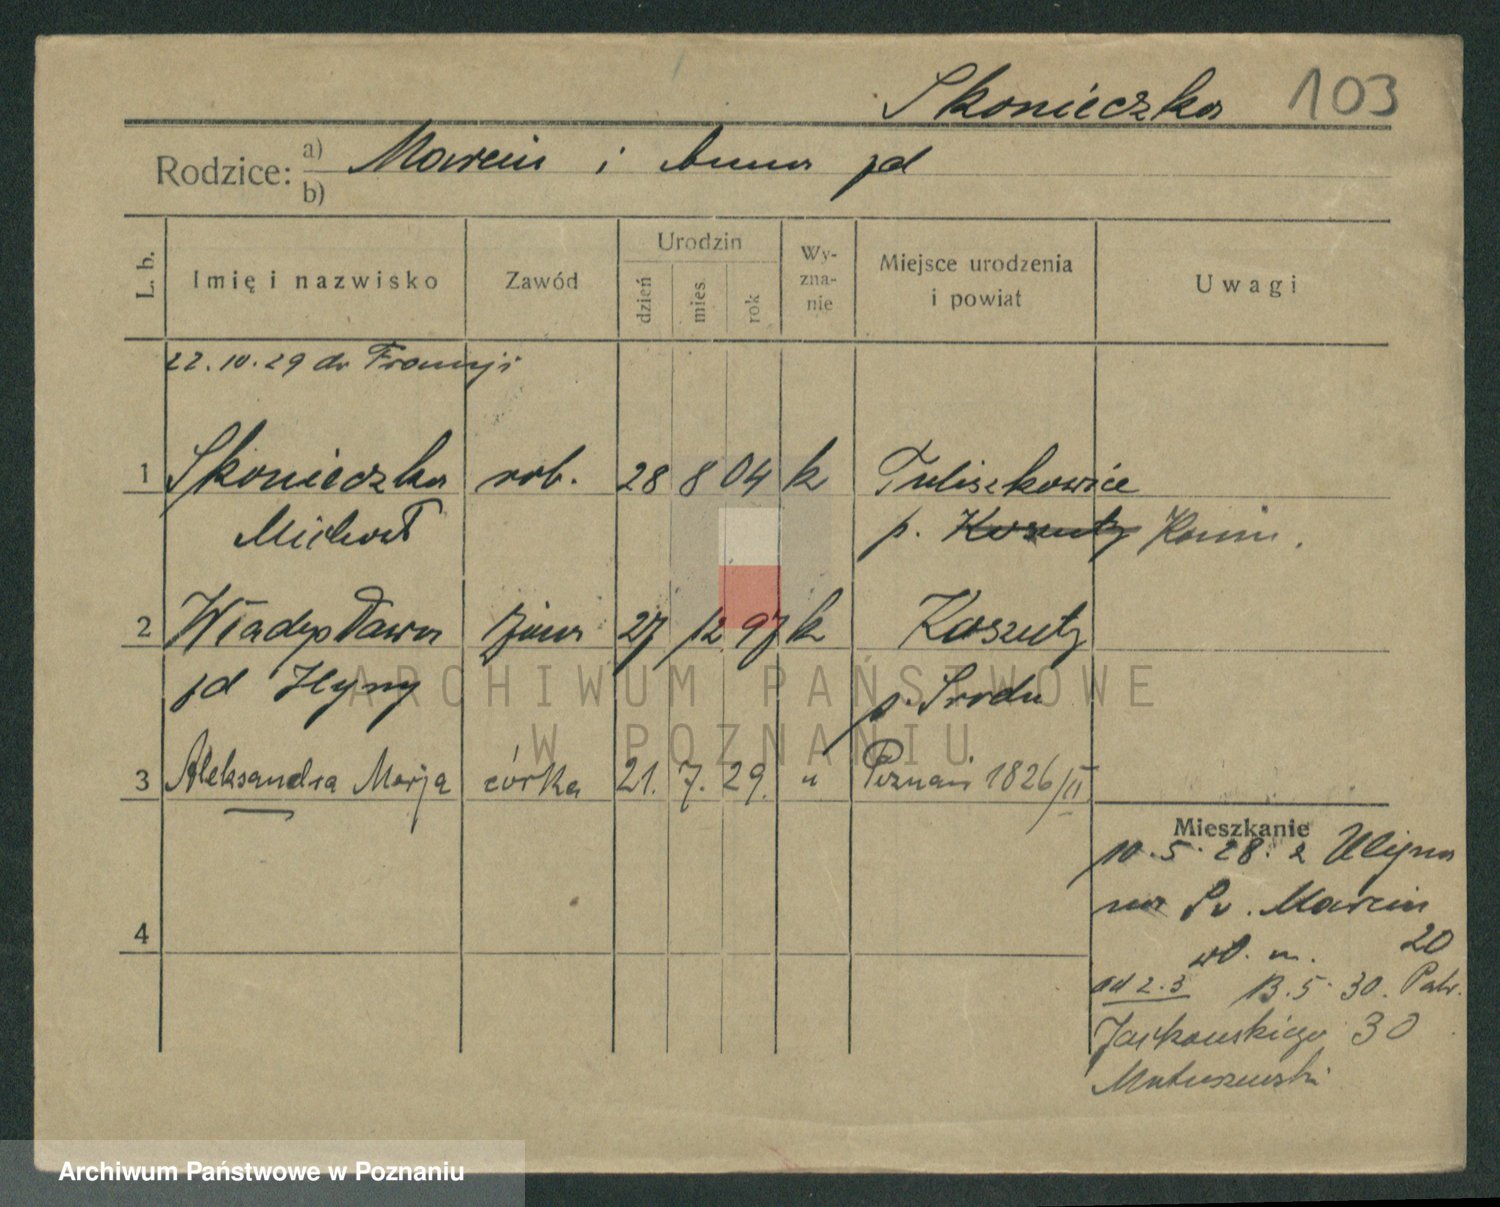 Skonieczka 103
Rodzice: a) Marcin i Anna jd
b)
L. b. Imię i nazwisko Zawód Urodzin dzień mies. rok Wy-zna-nie Miejsce urodzenia i powiat Uwagi
22.10.29 do Francji
1 Skonieczka rob. 28 8 04 k Tuliszkowice
Michał p. Koszuty Konin.
2 Władysława żona 27 12 97 k Koszuty
jd Hyny p. Środa
3 Aleksandra Marja córka 21. 7. 29. " Poznań 1826/II
4
Mieszkanie
10.5.28. z
na Św. Marcin
20
od 2.3 13.5 30. Patr.
Jackowskiego 30
Matuszewski
ARCHIWUM PAŃSTWOWE
W POZNANIU
Archiwum Państwowe w Poznaniu